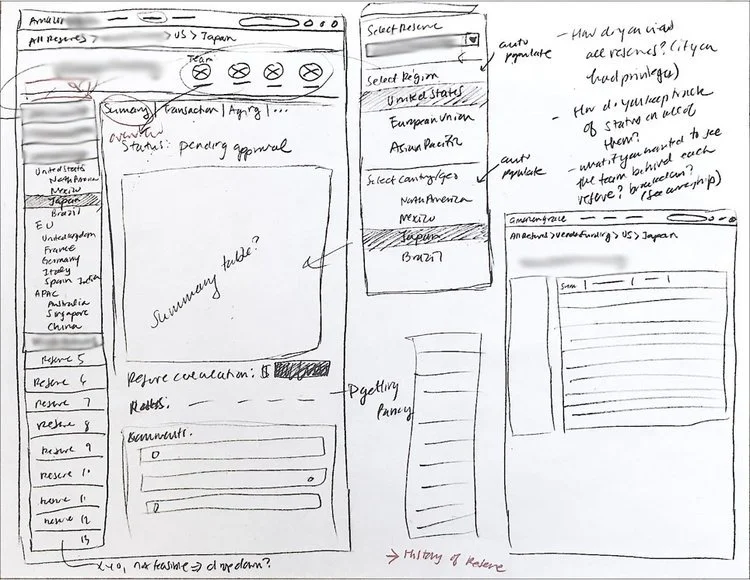 All Reserves >
> US > Japan
Team
Summary | Transaction | Aging | ...
overview
Status: pending approval
United States
North America
Mexico
Japan
Brazil
EU
United Kingdom
France
Germany
Italy
Spain
APAC
Australia
Singapore
China
Reserve 5
Reserve 6
Reserve 7
Reserve 8
Reserve 9
Reserve 10
Reserve 11
Reserve 12
13
Summary table?
Reserve calculation: $
Notes.
Comments.
→ getting
fancy
not feasible → dropdown?
Select Reserve
auto
populate
Select Region
United States
European Union
Asian Pacific
auto
populate
Select Country/Geo
North America
Mexico
Japan
Brazil
→ History of Reserve
- How do you view
all reserves? (if you
had privileges)
- How do you keep track
of status on all of
them?
- what if you wanted to see
the team behind each
reserve?
(see ownership)
> US > Japan